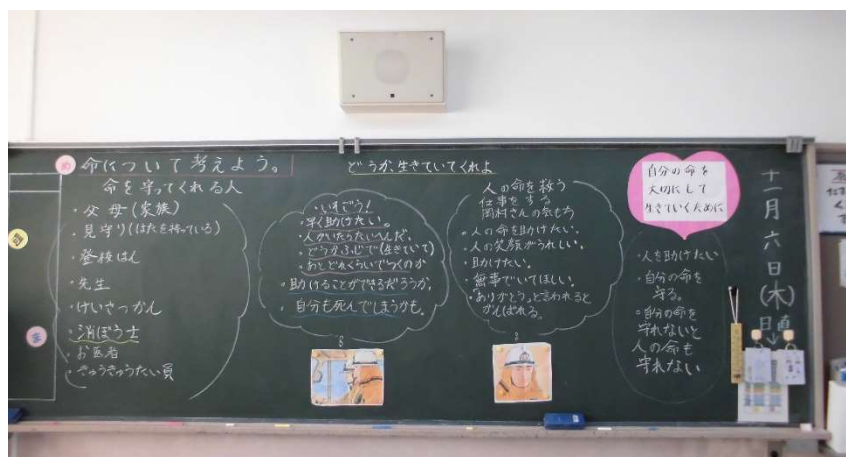 め 命について考えよう。
命を守ってくれる人
・父母(家族)
・見守り(はたを持っている)
・登校はん
・先生
・けいさつかん
・消ぼう士
・お医者
・きゅうきゅうたい員
どうか、生きていてくれよ
・いそごう!
・早く助けたい。
・人がいたらたいへんだ。
・どうかぶじで(生きていて)
・あとどれくらいでつくのか
・助けることができるだろうか。
・自分も死んでしまうかも。
人の命を救う
仕事をする
岡村さんの気もち
・人の命を助けたい。
・人の笑顔がうれしい。
・助けたい。
・無事でいてほしい。
・「ありがとう」と言われると
がんばれる。
自分の命を
大切にして
生きていくために
・人を助けたい
・自分の命を
守る。
・自分の命を
守れないと
人の命も
守れない
十一月六日(木)
日直
ま